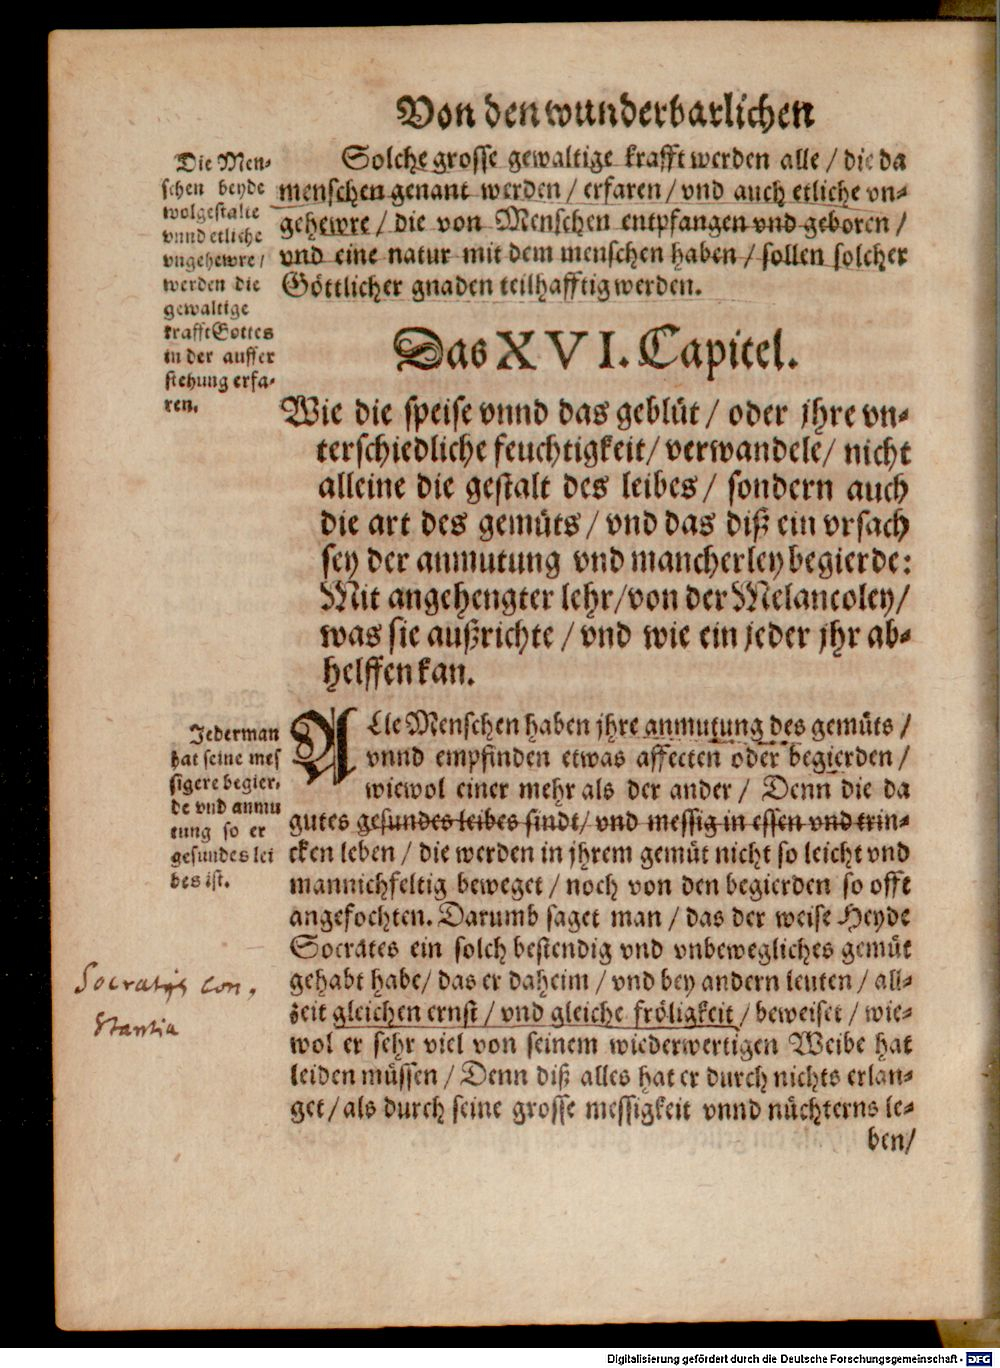 Von den wunderbarlichen
Solche grosse gewaltige krafft werden alle / die da
menschen genant werden / erfaren / vnd auch etliche vn-
gehewre / die von Menschen entpfangen vnd geboren /
vnd eine natur mit dem menschen haben / sollen solcher
Göttlicher gnaden teilhafftig werden.
Die Men-
schen beyde
wolgestalte
vnnd etliche
vngehewre /
werden die
gewaltige
krafft Gottes
in der auffer
stehung erfa-
ren.
Das XVI. Capitel.
Wie die speise vnnd das geblüt / oder jhre vn-
terschiedliche feuchtigkeit / verwandele / nicht
alleine die gestalt des leibes / sondern auch
die art des gemüts / vnd das diß ein vrsach
sey der anmutung vnd mancherley begierde:
Mit angehengter lehr / von der Melancoley /
was sie außrichte / vnd wie ein jeder jhr ab-
helffen kan.
ALle Menschen haben jhre anmutung des gemüts /
vnnd empfinden etwas affecten oder begierden /
wiewol einer mehr als der ander / Denn die da
gutes gesundes leibes sindt / vnd messig in essen vnd trin-
cken leben / die werden in jhrem gemüt nicht so leicht vnd
mannichfeltig beweget / noch von den begierden so offt
angefochten. Darumb saget man / das der weise Heyde
Socrates ein solch bestendig vnd vnbewegliches gemüt
gehabt habe / das er daheim / vnd bey andern leuten / all-
zeit gleichen ernst / vnd gleiche fröligkeit / beweiset / wie-
wol er sehr viel von seinem wiederwertigen Weibe hat
leiden müssen / Denn diß alles hat er durch nichts erlan-
get / als durch seine grosse messigkeit vnnd nüchterns le-
ben /
Jederman
hat seine mes
sigere begier-
de vnd anmu
tung so er
gesundes lei
bes ist.
Socratis con-
stantia
Digitalisierung gefördert durch die Deutsche Forschungsgemeinschaft - DFG